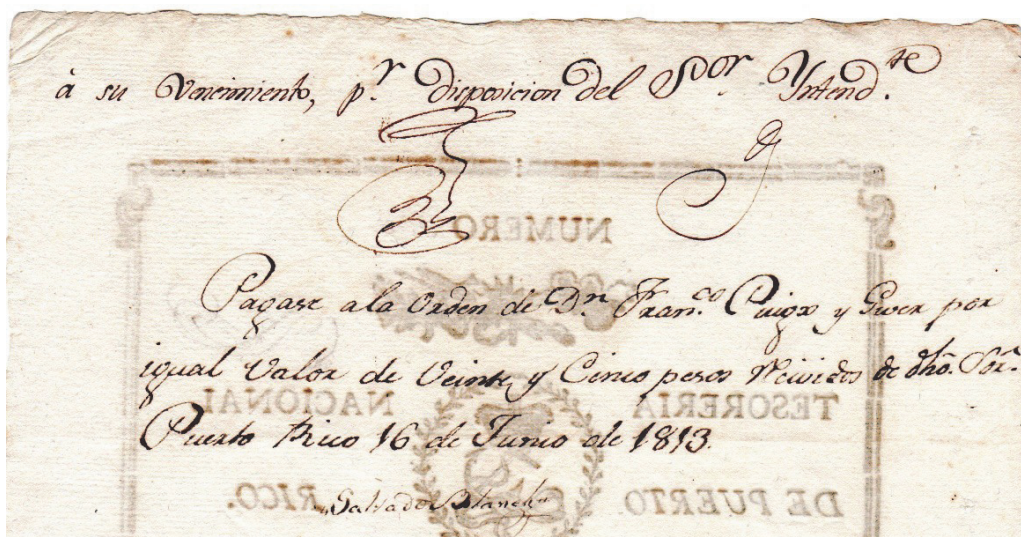 à su Vencimiento, p.r disposicion del Sor. Yntend.te
NUMERO
Pagase ala Orden de Dn. Fran.co Puigx y Guer por
igual Valor de Veinte y Cinco pesos Reciv.dos de dho. Sor.
TESORERIA NACIONAL
Puerto Rico 16 de Junio de 1813.
DE PUERTO. RICO.
Salvador Blanch